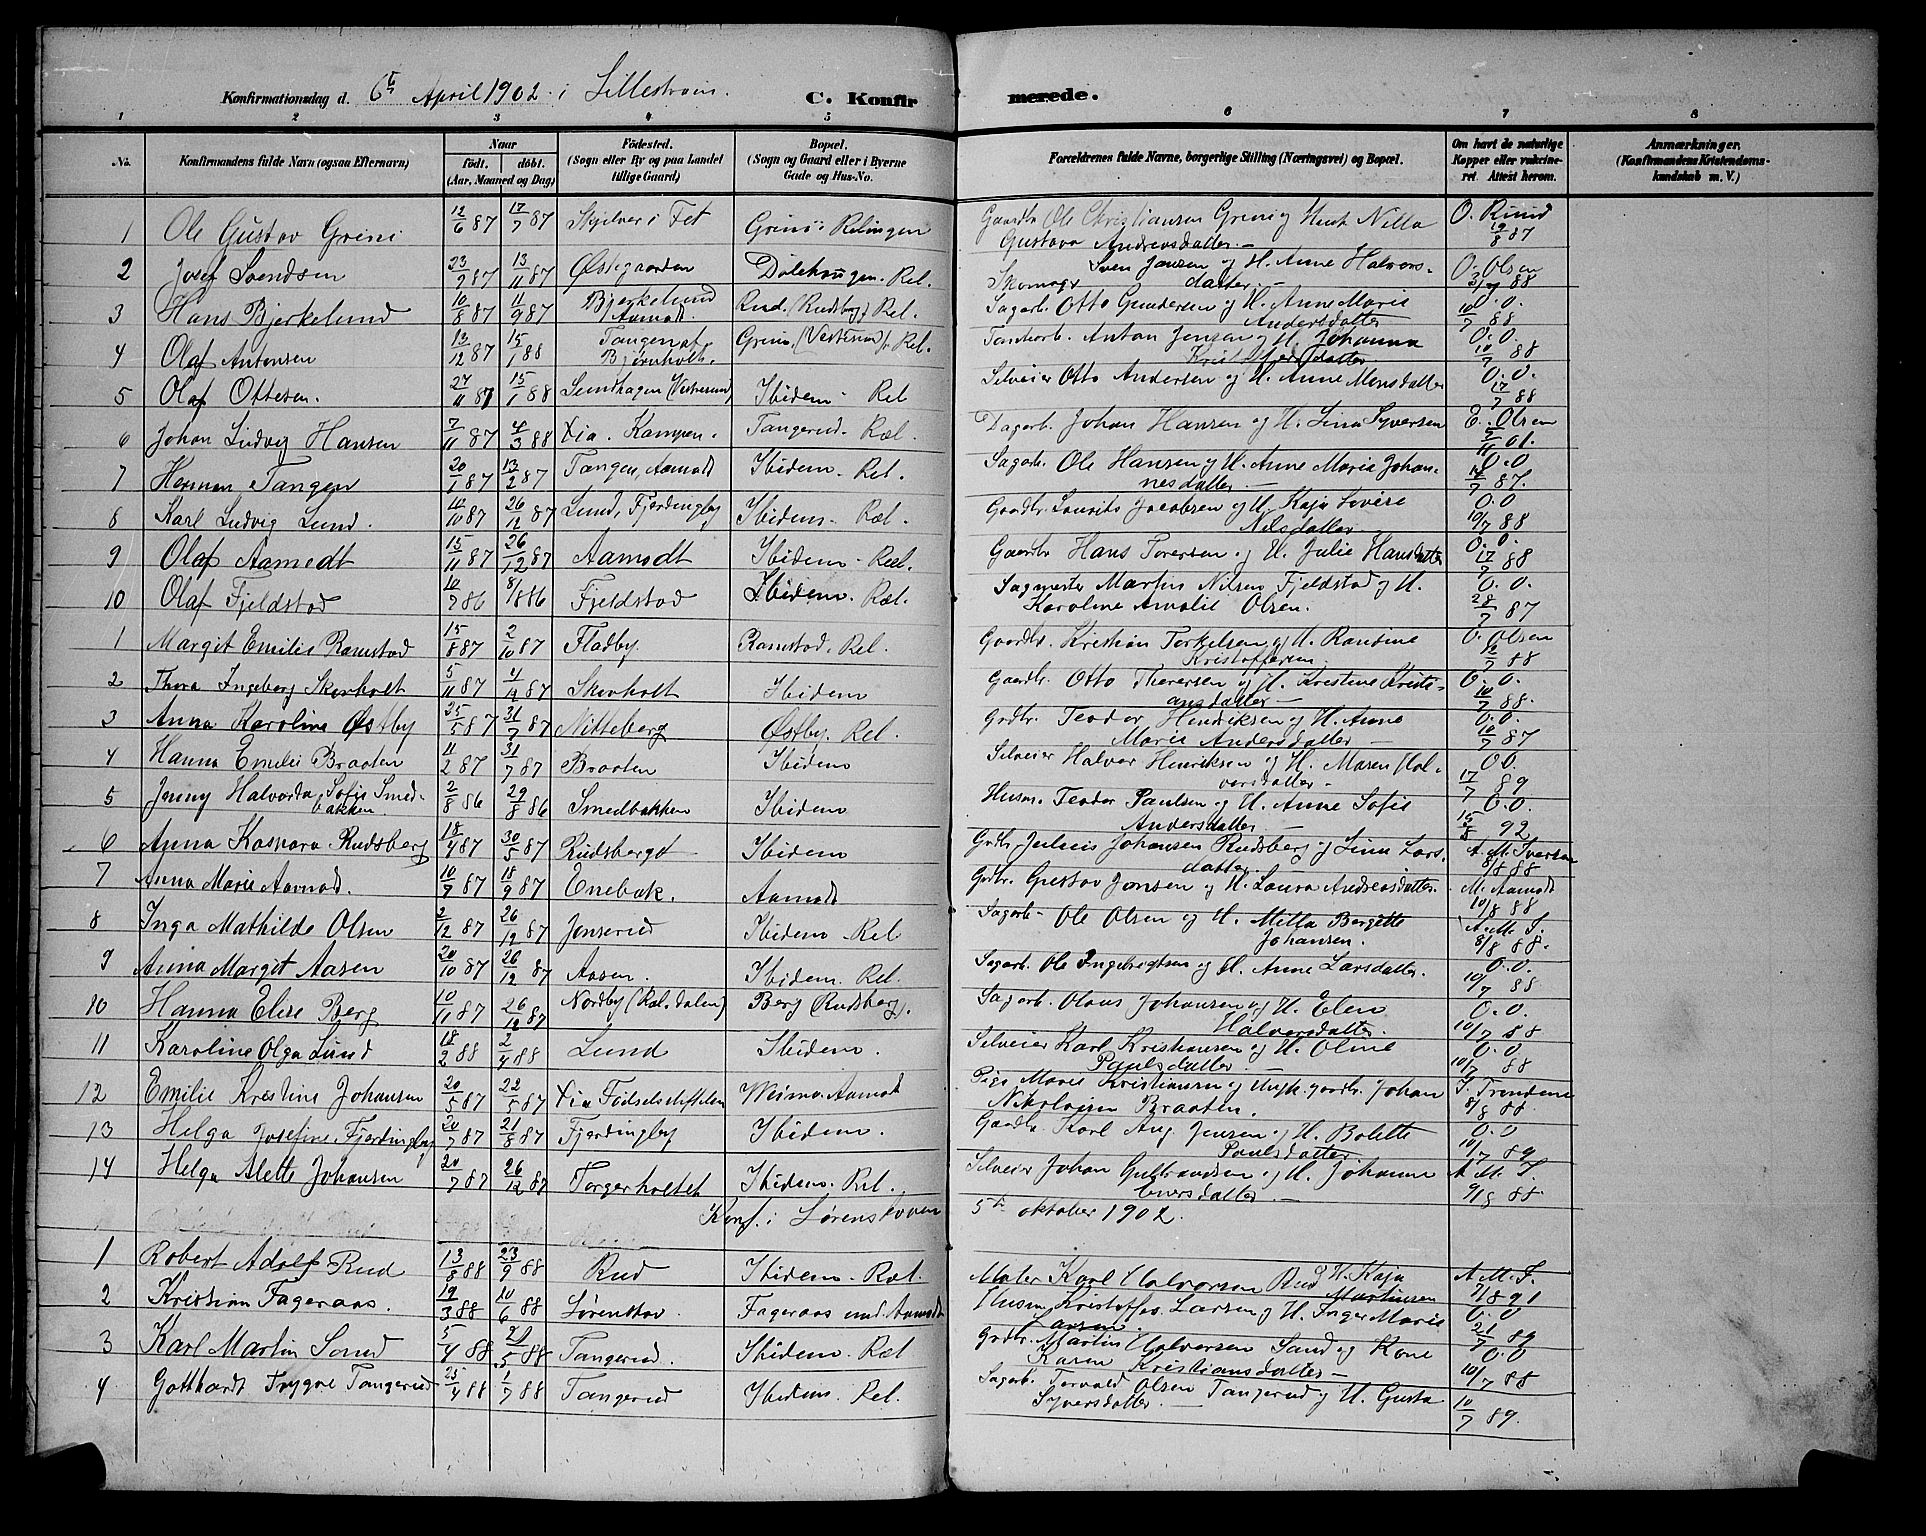 Konfirmationsdag d. 6te April 1902 i Lillestrøm. C. Konfirmerede.
1 2 3 4 5 6 7 8
No. Konfirmandens fulde Navn (ogsaa Efternavn) Naar født. døbt. (Aar, Maaned og Dag) Fødested. (Sogn eller By og paa Landet tillige Gaard) Bopæl. (Sogn og Gaard eller i Byerne Gade og Hus-No. Forældrenes fulde Navne, borgerlige Stilling (Næringsvei) og Bopæl. Om havt de naturlige Kopper eller vakcineret. Attest herom. Anmærkninger. (Konfirmandens Kristendomskundskab m. V.)
1 Ole Gustav Grini 12/6 87 17/7 87 i Fet Grini i Relingen Gaardbr Ole Christiansen Grini og Hust. Nilla Gustava Andreasdatter.— O. Ruud 19/8 87
2 Josef Svendsen 23/9 87 13/11 87 Østegaarden Dølehaugen. Rel. Skomager Sven Jansen og H. Anne Halvorsdatter.— O. Olsen 88
3 Hans Bjerkelund 10/8 87 11/9 87 Bjerkelund Aamodt Rud. (Rudsberg) Rel. Sagarb. Otto Gundersen og H. Anne Marie Andersdatter O.O. 10/7 88
4 Olaf Antonsen 13/12 87 15/1 88 Tangen af Bjørnholt. Grini, (Vestenm) Rel. Tomtearb. Anton Jensen og H. Johanna Kristoffersdatter O.O. 10/7 88
5 Olaf Ottesen. 27/11 87 15/1 88 Lundhagen (Vesterenm) Ibidem - Rel Selveier Otto Andersen og H. Anne Monsdatter O.O. 17/7 88
6 Johan Ludvig Hansen 7/11 87 4/3 88 Xia. Kampen. Tangerud. Ræl. Dagarb. Johan Hansen og H. Lina Syversen E. Olsen 01.
7 Herman Tangen 20/1 87 13/2 87 Tangen, Aamodt Ibidem - Rel. Sagarb. Ole Hansen og H. Anne Marie Johannesdatter.— O.O 87.
8 Karl Ludvig Lund. 16/10 87 26/12 87 Lund, Fjerdingby Ibidem. Ræl. Gaardbr Laurits Jacobsen og H. Kaja Lovise Nilsdatter O.O 10/7 88
9 Olaf Aamodt 15/11 87 26/12 87 Aamodt Ibidem - Ræl. Gaardbr Hans Torersen og H. Julie Hansdatter O.O. 17/7 88
10 Olaf Fjeldstad 10/7 86 8/8 86 Fjeldstad Ibidem. Ræl. Sagmester Martin Nilsen Fjeldstad og H. Karoline Amalie Olsen. O.O. 28/7 87
1 Margit Emilie Ramstad 15/8 87 2/10 87 Fladby. Ramstad. Rel. Gaardbr. Kristian Torkelsen og H. Randine Kristoffersen O. Olsen 12/7 88
2 Thora Ingeborg Skovholt 5/11 87 4/12 87 Skovholt Ibidem Gaardbr. Otto Thorersen og H. Kristine Kristiansdatter— O.O. 10/7 88.
3 Anna Karoline Østby 25/5 87 31/7 87 Nitteberg Østby. Rel. Grdbr. Teodor Henriksen og H. Anne Marie Andersdatter — O.O. 10/7 87
4 Hanna Emilie Braaten 11/2 87 31/7 87 Braaten Ibidem Selveier Halvor Henriksen og H. Maren Halvorsdatter. — O.O. 17/7 89
5 Jenny Halvarda Sofie Smedbakken. 2/8 86 29/8 86 Smedbakken Ibidem Husm. Teodor Paulsen og H. Anne Sofie Andersdatter — O.O. 15/8 92
6 Anna Kaspara Rudsberg 18/4 87 30/5 87 Rudsberg Ibidem Grdbr Julius Johansen Rudsberg og Lina Larsdatter A. M. Iversen 8/8 88
7 Anna Marie Aamod. 10/7 87 18/9 87 Enebak. Aamodt Grdbr. Gustav Jansen og H. Laura Andreasdatter. M. Aamodt 10/8 88
8 Inga Mathilde Olsen 2/12 87 26/12 87 Jonserud Ibidem Rel Sagarb- Ole Olsen og H. Milla Bergitte Johansen. A. M. I. 8/8 88.
9 Anna Margit Aasen 20/10 87 26/12 87 Aasen. Ibidem. Rel. Sagarb. Ole Ingebrigtsen og H. Anne Larsdatter. O.O. 10/7 88
10 Hanna Elise Berg 10/11 87 26/12 87 Nordby (Ræl. dalen) Berg (Rudsberg). Sagarb. Olaus Johansen og H. Elen Halvorsdatter. O.O. 10/7 88
11 Karoline Olga Lund 18/2 88 2/4 88 Lund Ibidem. Selveier Karl Kristiansen og H. Oline Paulsdatter — O.O 10/7 88
12 Emilie Kristine Johansen 20/5 87 22/5 87 Xia Fødselsstiftelsen Aamodt Pige Marie Kristiansen og Ungk. gaardbr. Johan Nikolaisen Braaten. 8/8 88.
13 Helga Josefine Fjerdingby 20/7 87 21/8 87 Fjerdingby Ibidem. Gaardbr. Karl Aug. Jensen og H. Bolette Paulsdatter O.O 10/7 89
14 Helga Alette Johansen 20/7 87 26/12 87 Torgerholtet Ibidem. Rel. Selveier Johan Gulbrandsen og H. Johanne Eversdatter. — A. M. I. 9/8 88.
Konf. i Lørenskoven 5te oktober 1902.
1 Robert Adolf Rud 13/8 88 23/9 88 Rud Ibidem. Ræl. Maler Karl Halvorsen Rud H. Kaja Martinsen A. M. I. 7/8 91
2 Kristian Fageraas. 19/3 88 10/6 88 Lørenskov. Fageraas und. Aamodt Husm Kristoffer Larsen og H. Inger Marie Larsen. O.O 21/7 89
3 Karl Martin Sand 5/4 88 21/5 88 Tangerud. Ibidem. Ræl Grdbr. Martin Halvorsen Sand og Kone Karen Kristiansdatter — O.O 10/7 88
4 Gotthardt Trygve Tangerud 25/4 88 1/7 88 Tangerud Ibidem. Rel. Sagarb. Torvald Olsen Tangerud og H. Gusta Syversdatter. — 10/7 89.